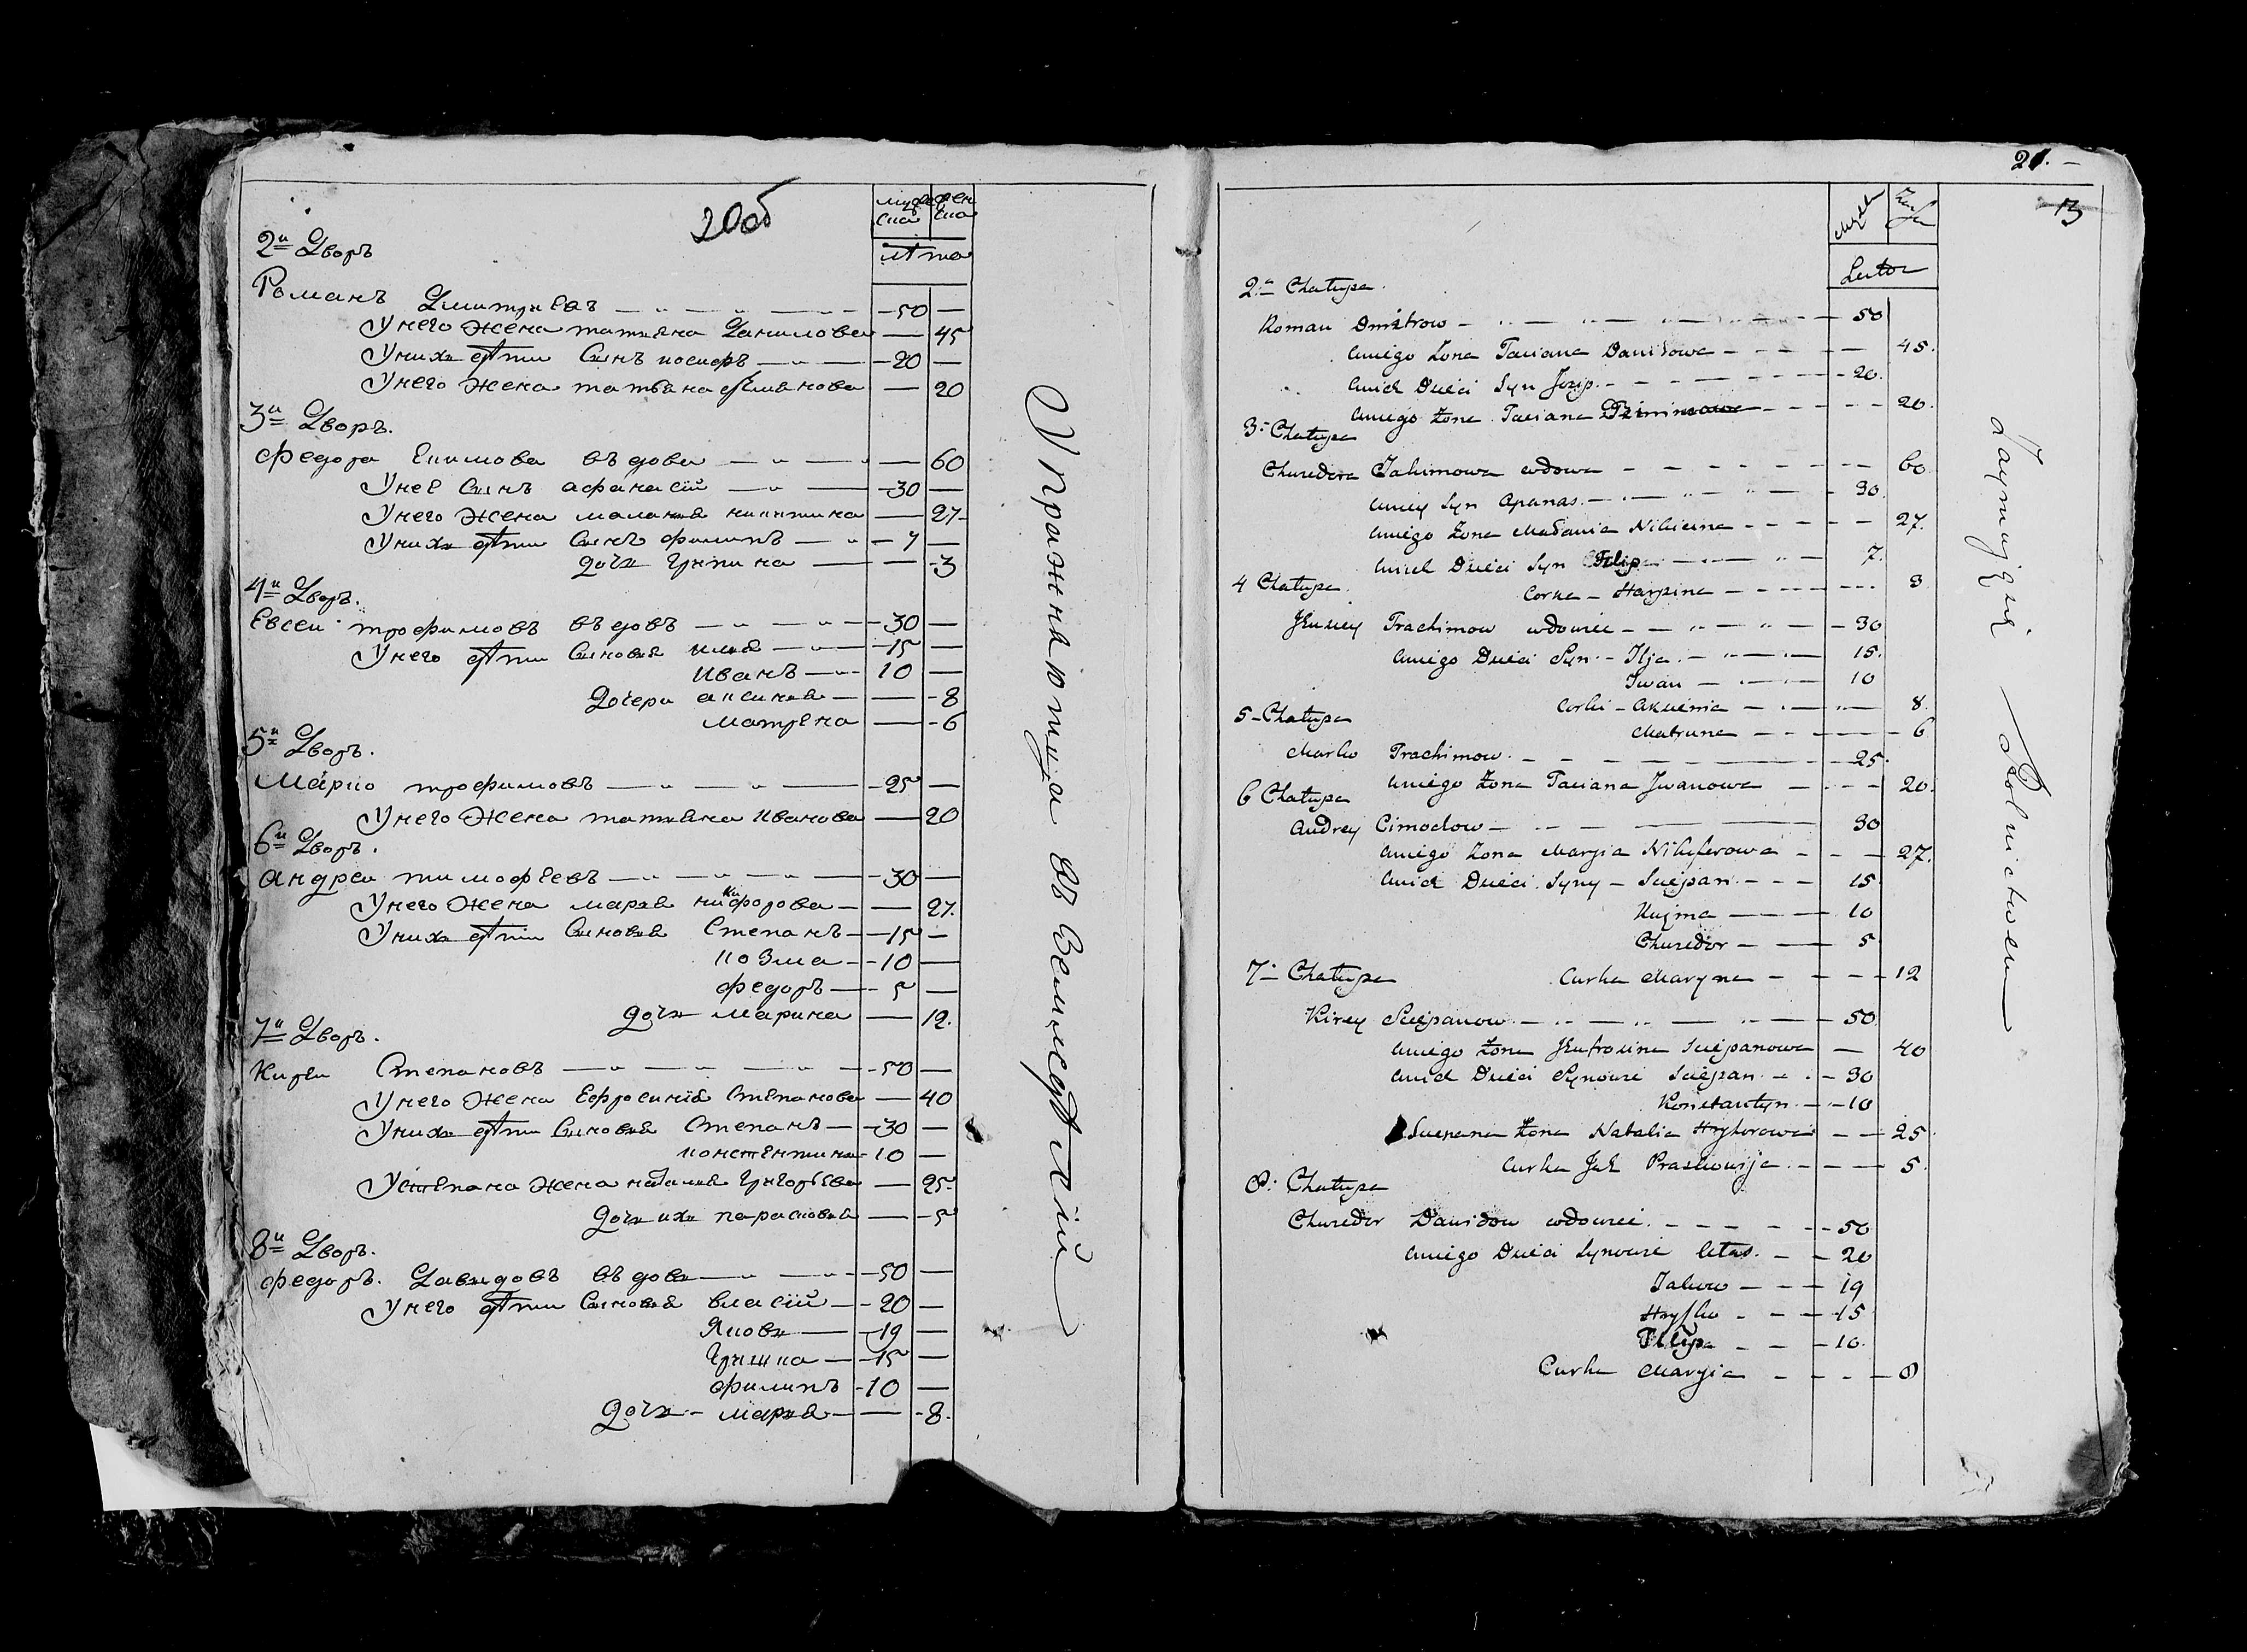 20об
мужеска женска
лѣта
2й Дворъ
Романъ Дмитриевъ 50
У него жена татьяна Данилова 45
У нихъ дѣти Сынъ иосифъ 20
У него жена татьяна 20
3й Дворъ.
Федора Екимова въдова 60
У нее Сынъ афанасiй 30
У него жена маланья никитина 27
У нихъ дѣти Сынъ филипъ 7
дочь Грипина 3
4й Дворъ.
Евсеи трофимовъ въдовъ 30
У него дѣти Сыновья илья 15
Иванъ 10
Дочери аксинья 8
матрена 6
5й Дворъ.
Марко трофимовъ 25
У него жена татьяна Иванова 20
6й Дворъ.
андреи тимофеевъ 30
У него жена марья никифорова 27.
У нихъ дѣти Сыновья Степанъ 15
козма 10
федоръ 5
дочь марина 12.
7й Дворъ.
Кирѣи Степановъ 50
У него жена Ефросинiя Степанова 40
У нихъ дѣти Сыновья Степанъ 30
констентинъ 10
У степана жена наталья Григорьева 25
дочь ихъ парасковья 5
8й Дворъ.
федоръ. Давыдовъ въдовъ 50
У него дѣти Сыновья власiй 20
Яковъ 19
Гришка 15
филипъ 10
дочь марья 8.
Упражняютца въ Земледѣлiй
21.
13
Lator
2. Chatupa.
Roman Dmitrow 50
Uniego Zona Taciana Daniłowa 45.
Unich Dzieci Syn Jozip. 20.
Uniego Zona Taciana 20.
3. Chatupa
Chwedora Jakimowa wdowa 60
Uniey Syn Apanas. 30.
Uniego Zona Małania Nikicina 27.
Unich Dzieci Syn Filip 7.
4 Chatupa.
Corka Harpina 3
Jeusiey Trachimow wdowiec 30
Uniego Dzieci Syn Ilja 15.
Iwan 10
Corki Aksienia 8.
5 Chatupa
Matruna 6
Marko Trachimow. 25.
Uniego Zona Taciana Jwanowa 20.
6 Chatupa
Andrey Cimochow 30
Uniego Zona Maryia Nikiferowa 27.
Unich Dzieci Syny Sciepan. 15
Kuzma 10
Chwedor 5
7. Chatupa
Curka Maryna 12
Kirey Sciepanow 50.
Uniego Zona Jeufrosina Sciepanowa 40
Unich Dzieci Synowie Sciepan 30
Konstantyn 10
Sciepana Zona Natalia Hryhorowa 25
Curka Jch Praskowija. 5.
8. Chatupa
Chwedor Dawidow wdowiec. 50
Uniego Dzieci Synowie 20
Jakow 19
Hryszko 15
Filip 10.
Curka Maryia 8
Zaymuiąsie Rolnictwem